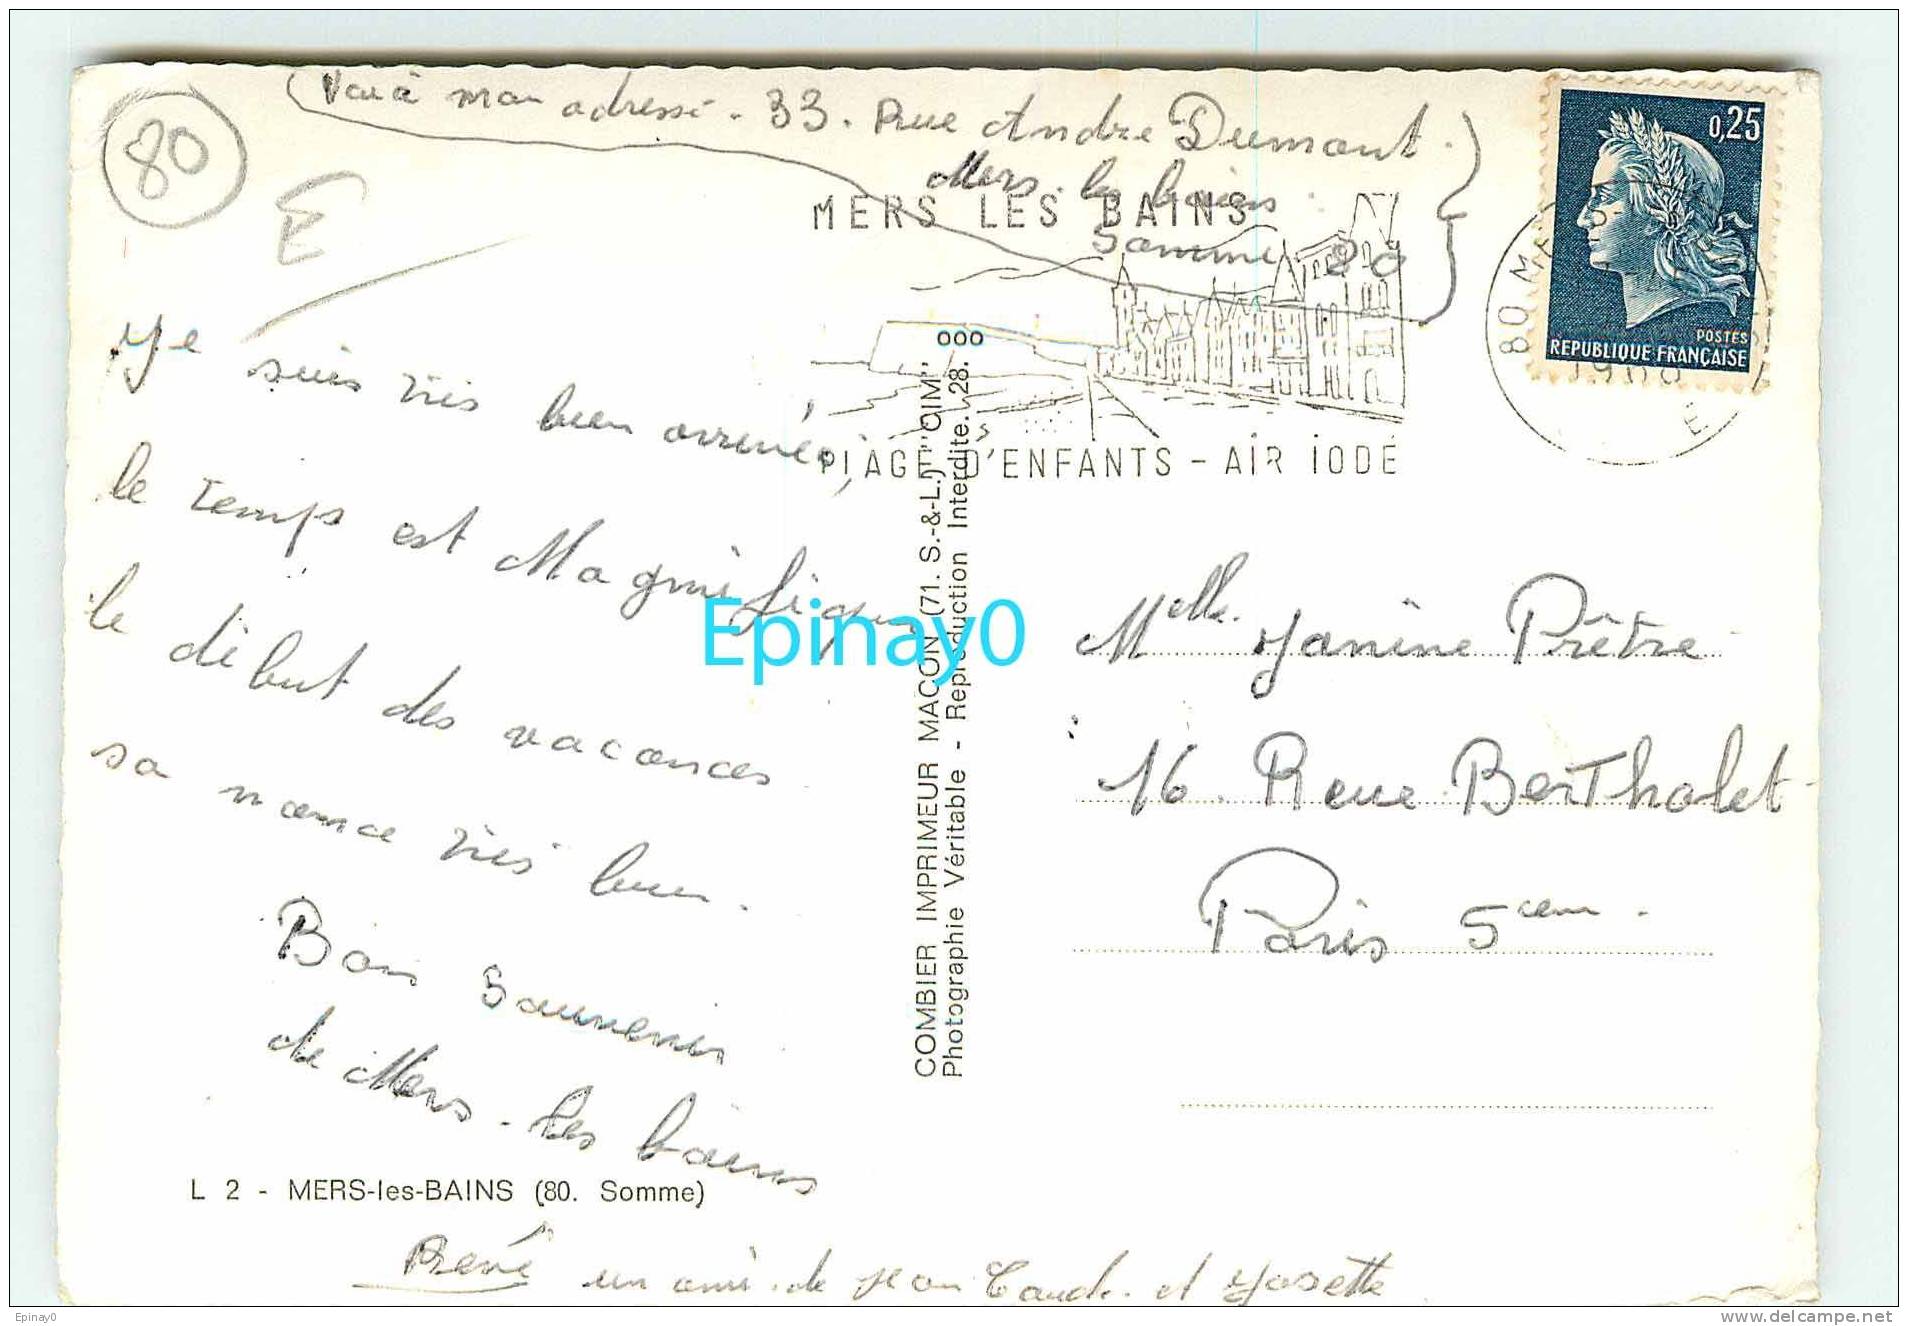 80
E
(Voià mon adresse. 33. Rue Andre Dumont.
Mers. les bains.
Somme 80
MERS LES BAINS
PLAGE D'ENFANTS - AIR IODÉ
0,25
POSTES
REPUBLIQUE FRANÇAISE
80 ME
Je suis très bien arrivée,
le temps est Magnifique
le début des vacances
sa
très bien.
Bons Souvenirs
de Mers-les bains
René un ami de Jean Claude et Josette
L 2 - MERS-les-BAINS (80. Somme)
COMBIER IMPRIMEUR MACON (71. S.-&-L.) "CIM"
Photographie Véritable - Reproduction Interdite. 28.
Melle. Janine Prêtre
16. Rue Bertholet
Paris 5cem.
Epinay0
Epinay0
www.delcampe.net